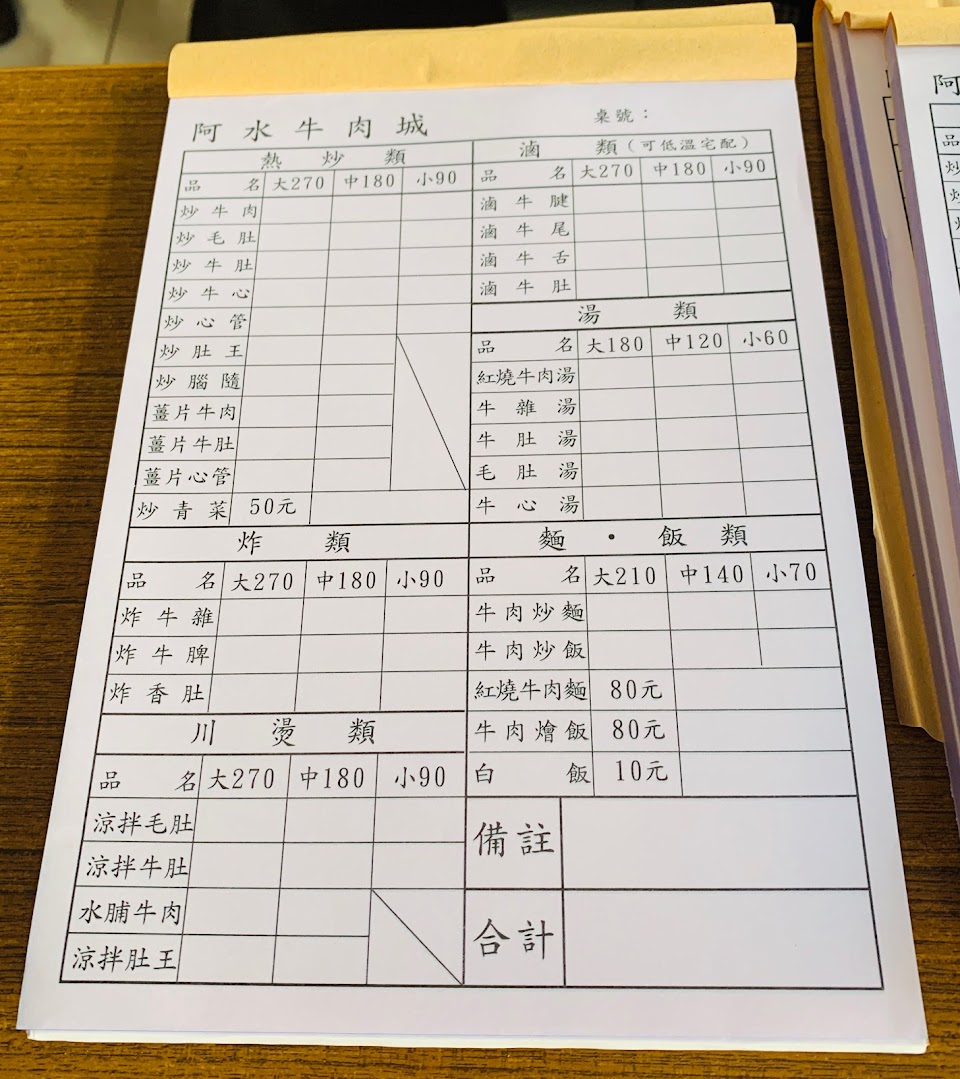 阿水牛肉城
桌號：
熱炒類
品名 大270 中180 小90
炒牛肉
炒毛肚
炒牛肚
炒牛心
炒心管
炒肚王
炒腦隨
薑片牛肉
薑片牛肚
薑片心管
炒青菜 50元
炸類
品名 大270 中180 小90
炸牛雜
炸牛脾
炸香肚
川燙類
品名 大270 中180 小90
涼拌毛肚
涼拌牛肚
水脯牛肉
涼拌肚王
滷類(可低溫宅配)
品名 大270 中180 小90
滷牛腱
滷牛尾
滷牛舌
滷牛肚
湯類
品名 大180 中120 小60
紅燒牛肉湯
牛雜湯
牛肚湯
毛肚湯
牛心湯
麵・飯類
品名 大210 中140 小70
牛肉炒麵
牛肉炒飯
紅燒牛肉麵 80元
牛肉燴飯 80元
白飯 10元
備註
合計
阿
品
炒